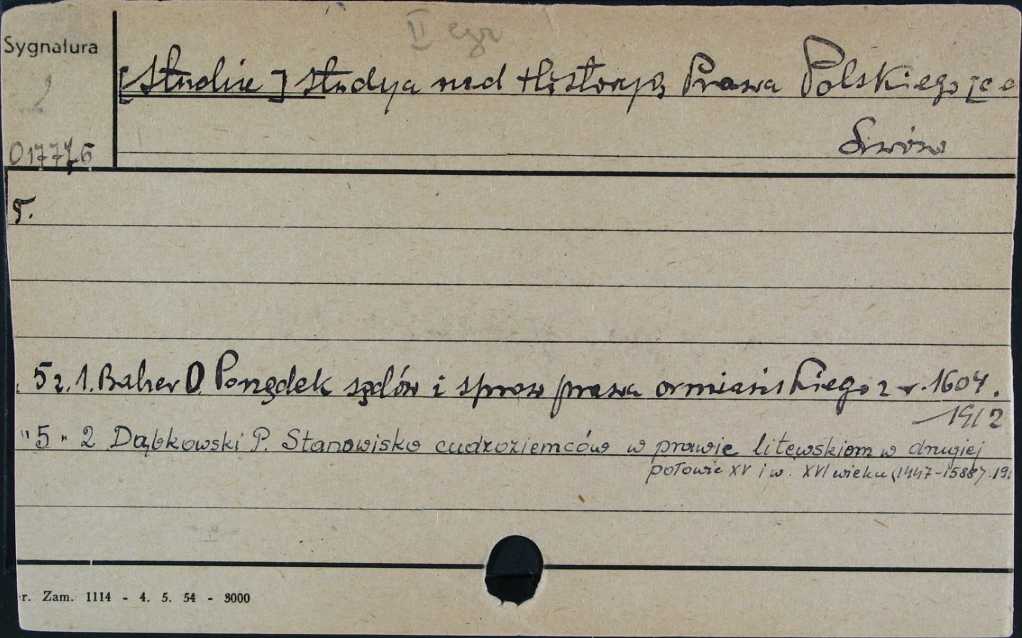 II egz
Sygnatura
2
[Studia] Studya nad Historyą Prawa Polskiego
017776
Lwów
5.
5 z. 1. Balzer O Porządek sądów i spraw prawa ormiańskiego z r. 1604.
1912
"5" 2 Dąbkowski P. Stanowisko cudzoziemców w prawie litewskiem w drugiej
połowie XV i w. XVI wieku (1447-1588). 19
r. Zam. 1114 - 4. 5. 54 - 3000